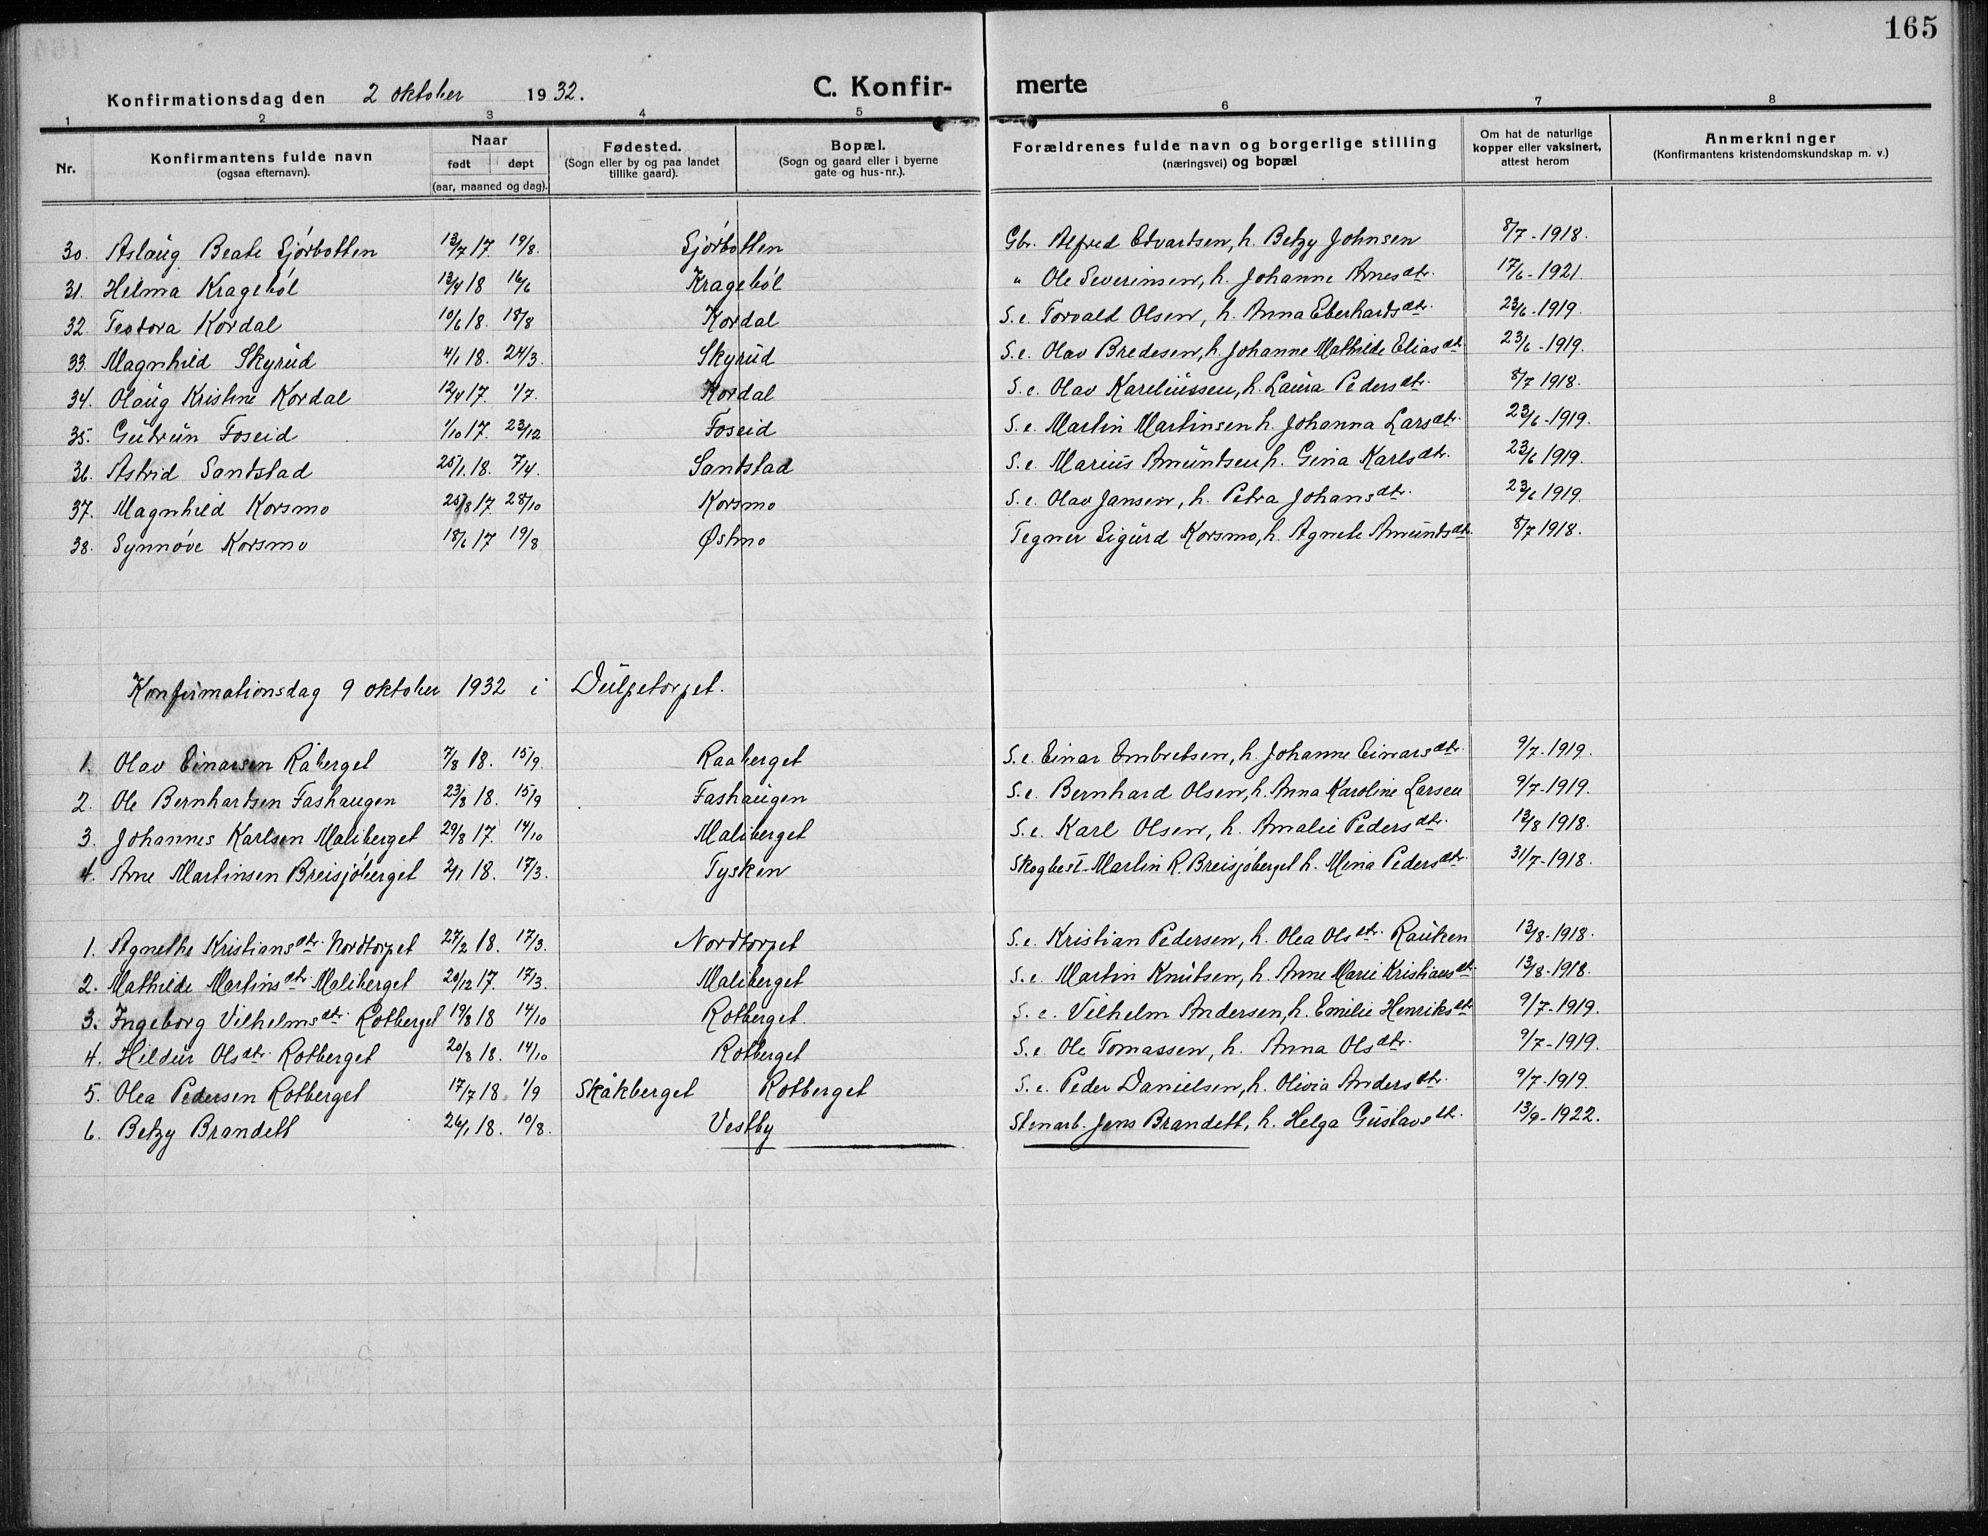 165
Konfirmationsdag den 2 oktober 1932. C. Konfir- merte
1 2 3 4 5 6 7 8
Nr. Konfirmantens fulde navn (ogsaa efternavn). Naar født døpt (aar, maaned og dag). Fødested. (Sogn eller by og paa landet tillike gaard). Bopæl. (Sogn og gaard eller i byerne gate og hus-nr.). Forældrenes fulde navn og borgerlige stilling (næringsvei) og bopæl Om hat de naturlige kopper eller vaksinert, attest herom Anmerkninger (Konfirmantens kristendomskundskap m. v.)
30. Aslaug Beate Sjørbotten 13/7 17 19/8. Sjørbotten Gbr. Alfred Edvartsen, h. Betzy Johnsen 8/7-1918.
31. Helma Krageböl 13/4 18 16/6 Krageböl " Ole Severinsen, h. Johanne Arnesdtr. 17/6-1921.
32. Teodora Kordal 10/6 18. 18/8 Kordal S.e. Torvald Olsen, h. Anna Eberhardsdtr. 23/6-1919.
33. Magnhild Skyrud 4/1 18. 24/3. Skyrud S.e. Olav Bredesen, h. Johanne Mathilde Eliasdtr. 23/6-1919.
34. Olaug Kristine Kordal 12/4 17. 1/7. Kordal S.e. Olav Kareliussen, h. Laura Pedersdtr. 8/7 1918.
35. Gudrun Foseid 1/10 17. 23/12 Foseid S.e. Martin Martinsen h. Johanna Larsdtr. 23/6-1919.
36. Astrid Sandstad 25/1 18. 7/4. Sandstad S.e. Marius Amundsen h. Gina Karlsdtr. 23/6 1919.
37. Magnhild Korsmo 25/8 17. 28/10 Korsmo S.e. Olav Jansen, h. Petra Johansdtr. 23/6 1919.
38. Synnøve Korsmo 18/6 17 19/8 Østmo Tegner Sigurd Korsmo, h. Agnete Amundsdtr. 8/7 1918.
Konfirmationsdag 9 oktober 1932 i Dulpetorpet.
1. Olav Einarsen Råberget 7/8 18. 15/9. Raaberget S.e. Einar Embretsen, h. Johanne Einarsdtr. 9/7-1919.
2. Ole Bernhardsen Fashaugen 23/8 18. 15/9 Fashaugen S.e. Bernhard Olsen, h. Anna Karoline Larsen 9/7-1919.
3. Johannes Karlsen Maliberget 29/8 17. 14/10 Maliberget S.e. Karl Olsen, h. Amalie Pedersdtr. 13/8 1918.
4. Arne Martinsen Breisjöberget 2/1 18. 17/3. Tysken Skogbest. Martin R. Breisjöberget h. Mina Pedersdtr. 31/7-1918.
1. Agnethe Kristiansdtr. Nordtorpet 27/2 18. 17/3. Nordtorpet S.e. Kristian Pedersen, h. Olea Olsdtr. Rauken 13/8-1918.
2. Mathilde Martinsdtr. Maliberget 20/12 17. 17/3. Maliberget S.e. Martin Knutsen, h. Anne Marie Kristiansdtr. 13/8-1918.
3. Ingeborg Vilhelmsdtr. Rotberget 19/8 18 14/10 Rotberget. S.e. Vilhelm Andersen, h. Emilie Henriksdtr. 9/7-1919.
4. Hildur Olsdtr. Rotberget 20/8 18. 14/10 Rotberget S.e. Ole Tomassen, h. Anna Olsdtr. 9/7-1919.
5. Olea Pedersen Rotberget 17/7 18 1/9 Skåkberget Rotberget S.e. Peder Danielsen, h. Olivia Andersdtr. 9/7-1919.
6. Betzy Brandett 26/1 18. 10/8. Vestby Stenarb. Jens Brandett, h. Helga Gustavsdtr. 13/9-1922.